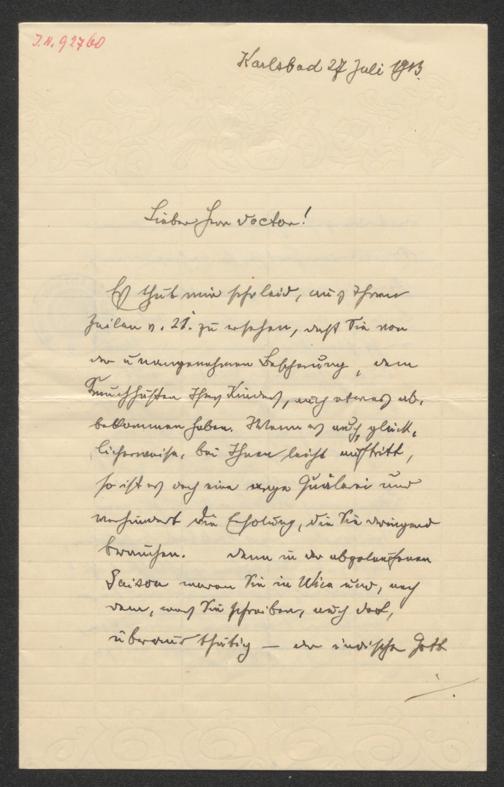 J.N. 92760
Karlsbad 27 Juli 1913.
Lieber Herr Doctor!
Es thut mir sehr leid, aus Ihren
Zeilen v. 21. zu ersehen, daß Sie von
der unangenehmen Bescherung, dem
Keuchhusten Ihres Kindes, auch etwas ab-
bekommen haben. Wenn es auch, glück-
licherweise, bei Ihnen leicht auftritt,
so ist es doch eine arge Quälerei und
verhindert die Erholung, die Sie dringend
brauchen. Denn in der abgelaufenen
Saison waren Sie in Wien und, nach
dem, was Sie schreiben, auch dort,
überaus thätig — der indische Gott